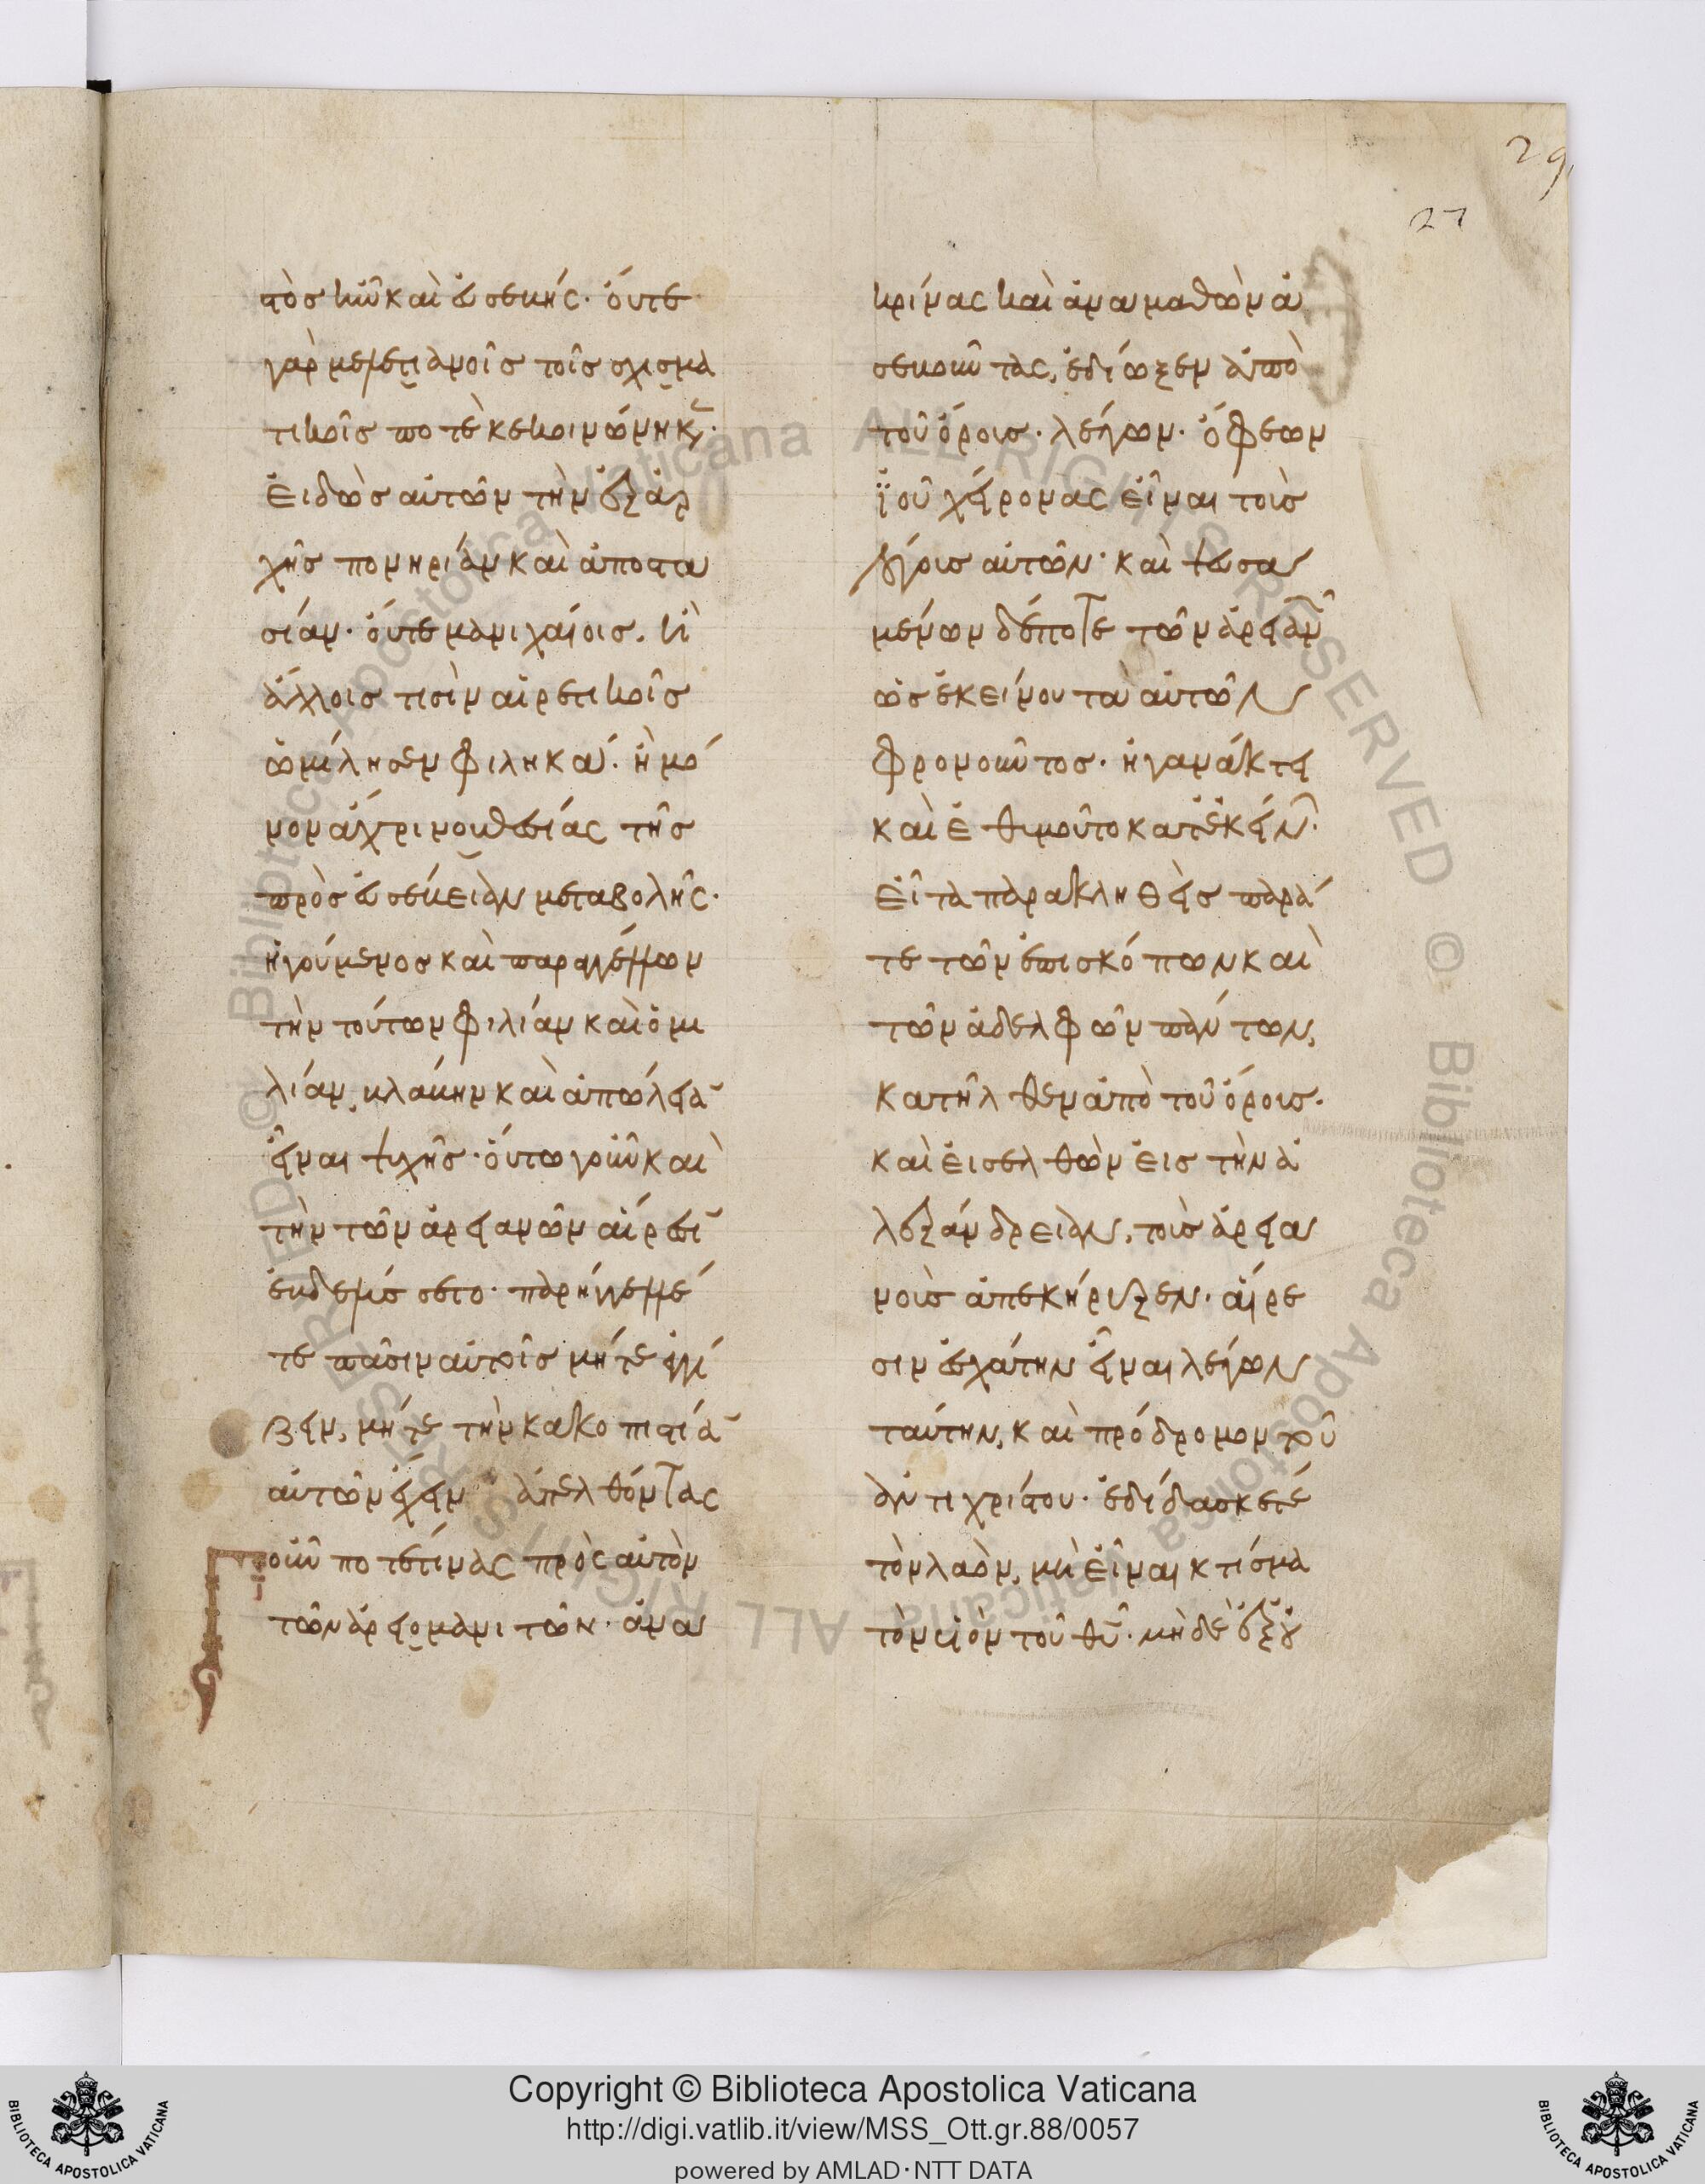 29
27
τὸσ ἦν καὶ εὐσεβής· ὄυτε
γὰρ μελετιανοῖσ τοῖσ σχισμα
τικοῖσ ποτὲ κεκοινώνηκεν·
ἐιδὼσ αὐτῶν τὴν ἐξ ἀρ
χῆσ πονηρίαν καὶ ἀποστα
σίαν· ὄυτε μανιχαίοισ, ἢ
ἄλλοισ τισὶν αἱρετικοῖσ
ὡμίλησεν φιληκά· ἢ μό
νον ἄχρι νουθεσίας τῆσ
πρὸσ εὐσέβειαν μεταβολῆς·
ἡγούμενοσ καὶ παραγγέλλων
τὴν τούτων φιλίαν καὶ ὁμι
λίαν, βλάβην καὶ ἀπώλεια
εἶναι ψυχῆσ· ὅυτω γοῦν καὶ
τὴν τῶν ἀρειανῶν αἵρεσι
ἐβδελύσσετο· παρήγγελλέ
τε πᾶσιν αὐτοῖσ μήτε ἐγγί
ζειν, μήτε τὴν κακοπιστία
αὐτῶν ἔχειν ἀπελθόντας
γοῦν ποτέ τινας πρὸς αὐτὸν
τῶν ἀρειομανιτῶν· ἀνα
κρίνας καὶ ἀναμαθὼν ἀ
σεβοῦντας, ἐδίωξεν ἀπὸ
τοῦ ὄρουσ· λέγων· ὄφεων
ἰοῦ χείρονας εἶναι τοὺσ
λόγουσ αὐτῶν· καὶ ψευσα
μένων δέποτε τῶν ἀρειανῶν
ὡσ ἐκείνου τὰ αὐτῶν
φρονοῦντοσ· ἠγανάκτει
καὶ ἐθυμοῦτο κατ' ἐκείνων·
εἶτα παρακληθεὶσ παρά
τε τῶν ἐπισκόπων καὶ
τῶν ἀδελφῶν πάντων,
κατῆλθεν ἀπὸ τοῦ ὄρουσ·
καὶ ἐισελθὼν ἐισ τὴν ἀ
λεξάνδρειαν, τοὺσ ἀρεια
νοὺσ ἀπεκήρυξεν· αἵρε
σιν ἐσχάτην εἶναι λέγων
ταύτην, καὶ πρόδρομον τοῦ
ἀντιχρίστου· ἐδίδασκέ τε
τὸν λαὸν, μὴ εἶναι κτίσμα
τὸν υἱὸν τοῦ θυ̅· μὴ δὲ ἐξ οὐ
Copyright © Biblioteca Apostolica Vaticana
http://digi.vatlib.it/view/MSS_Ott.gr.88/0057
powered by AMLAD·NTT DATA
BIBLIOTECA APOSTOLICA VATICANA
BIBLIOTECA APOSTOLICA VATICANA